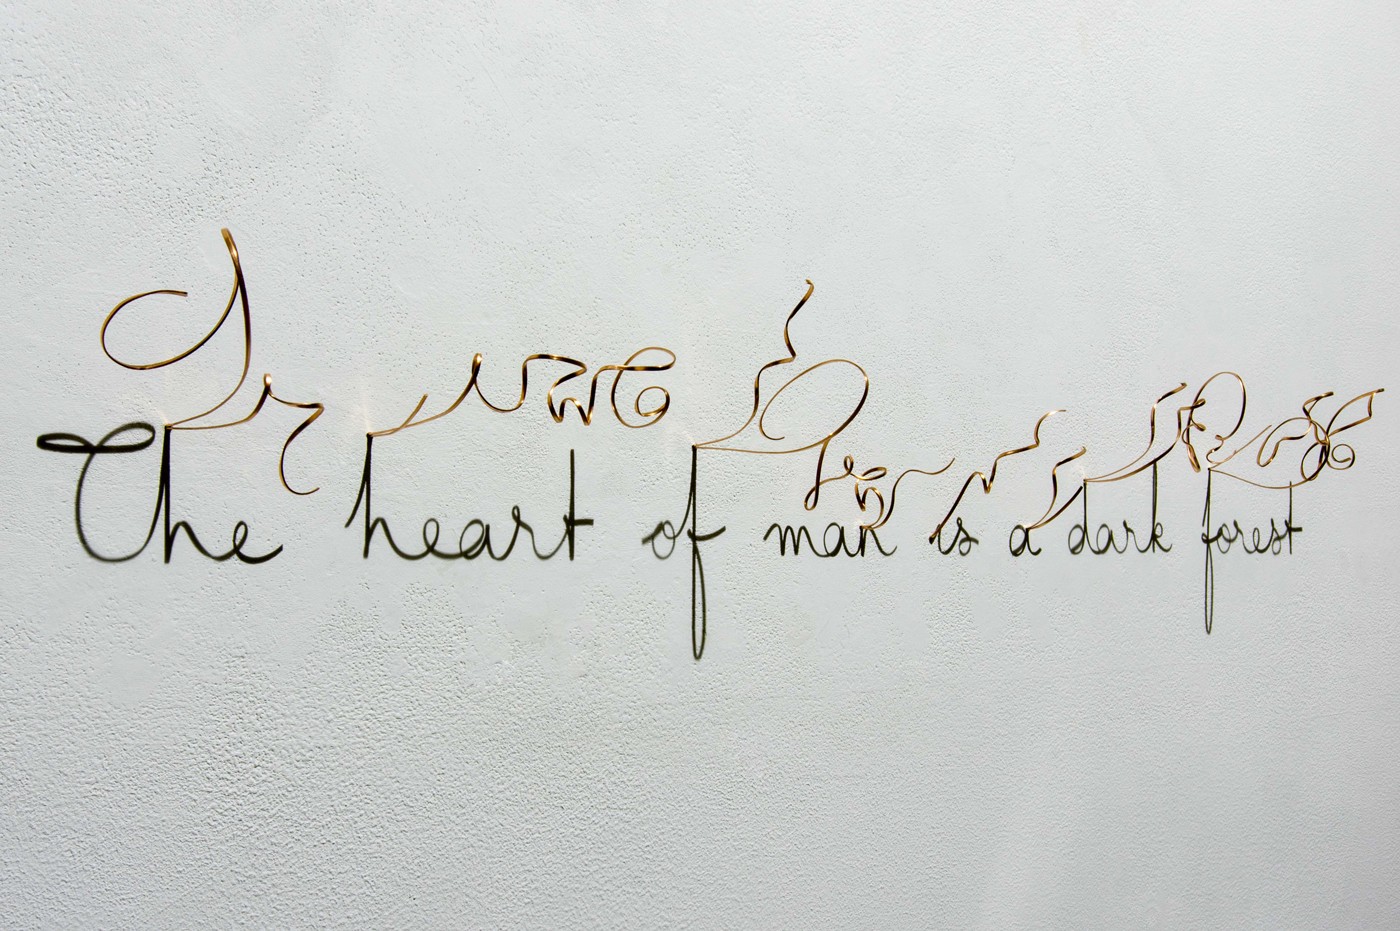 The heart of man is a dark forest